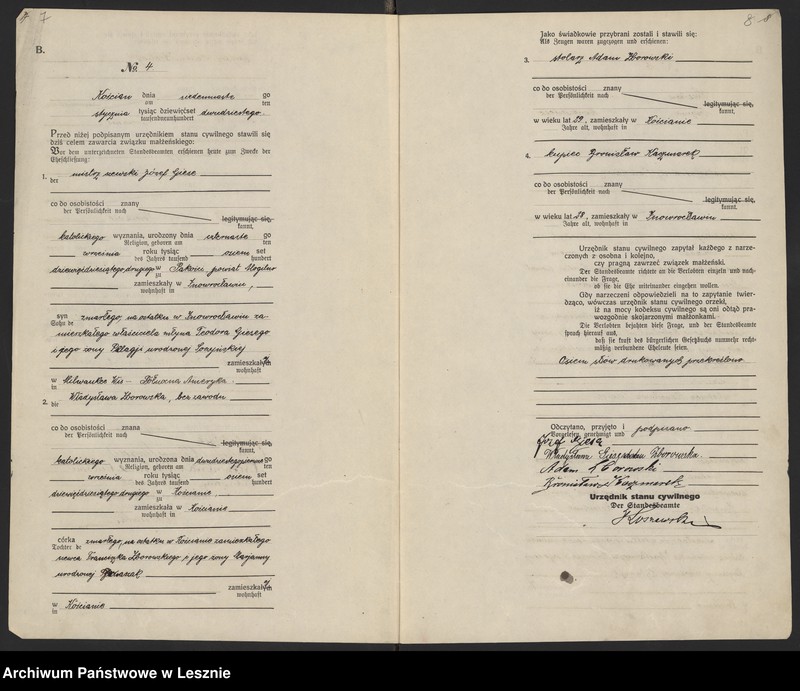 7
B.
No. 4
Kościan dnia siedemnaste go
am ten
stycznia tysiąc dziewięćset dwudziestego
tausendneunhundert
Przed niżej podpisanym urzędnikiem stanu cywilnego stawili się
dziś celem zawarcia związku małżeńskiego:
Vor dem unterzeichneten Standesbeamten erschienen heute zum Zwecke der
Eheschließung:
1. mistrz szewski Józef Giese
der
co do osobistości znany
der Persönlichkeit nach
legitymując się,
kannt,
katolickiego wyznania, urodzony dnia czternaste go
Religion, geboren am ten
września roku tysiąc osiem set
des Jahres tausend hundert
dziewięćdziesiątego drugiego w Pakość, powiat Mogilno
zu
zamieszkały w Inowrocławiu,
wohnhaft in
syn zmarłego, na ostatku w Inowrocławiu za-
Sohn de
mieszkałego właściciela młyna Teodora Giesego
i jego żony Pelagji urodzonej
zamieszkałych
wohnhaft
w Milwaukee Wis – Północna Ameryka.
in
2. Władysława Zborowska, bez zawodu
die
co do osobistości znana
der Persönlichkeit nach
legitymując się,
kannt,
katolickiego wyznania, urodzona dnia go
Religion, geboren am ten
września roku tysiąc osiem set
des Jahres tausend hundert
dziewięćdziesiątego drugiego w Kościanie,
zu
zamieszkała w Kościanie
wohnhaft in
córka zmarłego, na ostatku w Kościanie zamieszkałego
Tochter de
szewca Franciszka Zborowskiego i jego żony Marjanny
urodzonej
zamieszkałych
wohnhaft
w Kościanie
in
8
Jako świadkowie przybrani zostali i stawili się:
Als Zeugen waren zugezogen und erschienen:
3. stolarz Adam Zborowski
co do osobistości znany
der Persönlichkeit nach
legitymując się,
kannt,
w wieku lat 29, zamieszkały w Kościanie
Jahre alt, wohnhaft in
4. kupiec Bronisław Kaczmarek
co do osobistości znany
der Persönlichkeit nach
legitymując się,
kannt,
w wieku lat 28, zamieszkały w Inowrocławiu
Jahre alt, wohnhaft in
Urzędnik stanu cywilnego zapytał każdego z narze-
czonych z osobna i kolejno,
czy pragną zawrzeć związek małżeński.
Der Standesbeamte richtete an die Verlobten einzeln und nach-
einander die Frage,
ob sie die Ehe miteinander eingehen wollen.
Gdy narzeczeni odpowiedzieli na to zapytanie twier-
dząco, wówczas urzędnik stanu cywilnego orzekł,
iż na mocy kodeksu cywilnego są oni odtąd pra-
wozgodnie skojarzonymi małżonkami.
Die Verlobten bejahten diese Frage, und der Standesbeamte
sprach hierauf aus,
daß sie kraft des bürgerlichen Gesetzbuchs nunmehr recht-
mäßig verbundene Eheleute seien.
Osiem słów drukowanych przekreślono
Odczytano, przyjęto i podpisano
Vorgelesen, genehmigt und
Józef Giese
Władysława Giese z domu Zborowska.
Adam Zborowski
Bronisław Kaczmarek
Urzędnik stanu cywilnego
Der Standesbeamte
Archiwum Państwowe w Lesznie